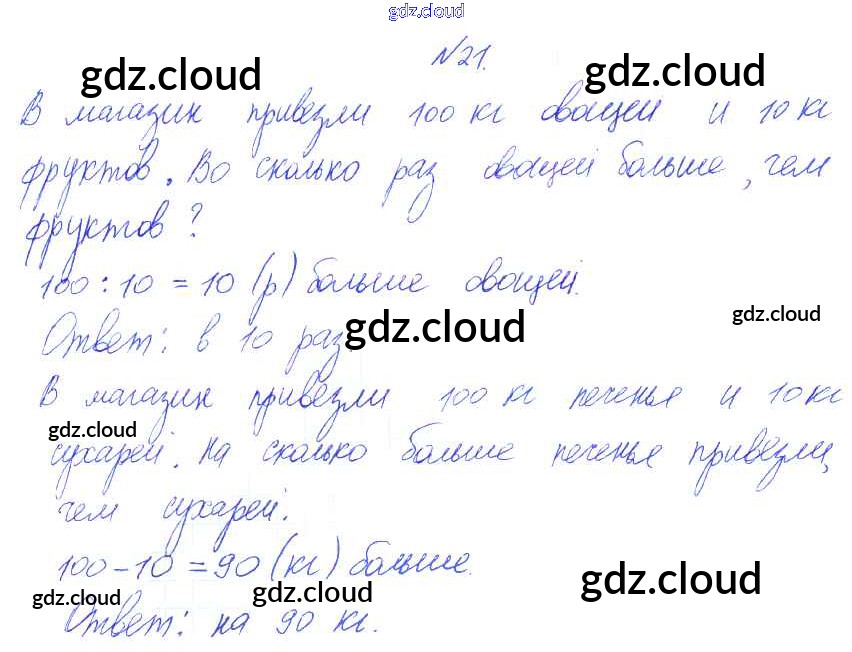 gdz.cloud
№21.
gdz.cloud gdz.cloud
В магазин привезли 100 кг овощей и 10 кг
фруктов. Во сколько раз овощей больше, чем
фруктов?
100 : 10 = 10 (р) больше овощей.
gdz.cloud gdz.cloud
Ответ: в 10 раз.
В магазин привезли 100 кг печенья и 10 кг
gdz.cloud
сухарей. На сколько больше печенья привезли,
чем сухарей.
100 - 10 = 90 (кг) больше.
gdz.cloud gdz.cloud gdz.cloud
Ответ: на 90 кг.